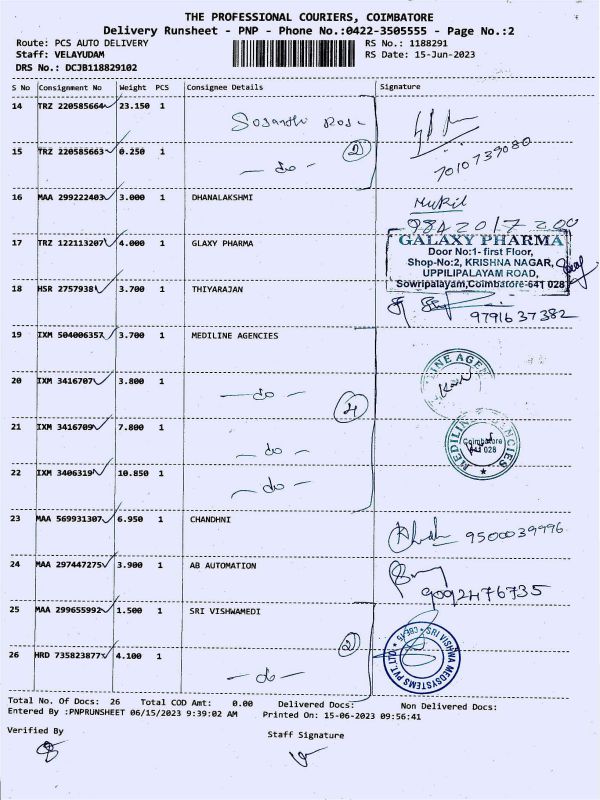 THE PROFESSIONAL COURIERS, COIMBATORE
Delivery Runsheet - PNP - Phone No.:0422-3505555 - Page No.:2
Route: PCS AUTO DELIVERY
RS No.: 1188291
Staff: VELAYUDAM
RS Date: 15-Jun-2023
DRS No.: DCJB118829102
S No Consignment No Weight PCS Consignee Details Signature
14 TRZ 220585664 23.150 1
7010739080
15 TRZ 220585663 0.250 1 - do -
2
16 MAA 299222403 3.000 1 DHANALAKSHMI Mukil
9842017200
17 TRZ 122113207 4.000 1 GLAXY PHARMA
GALAXY PHARMA
Door No:1- first Floor,
Shop-No:2, KRISHNA NAGAR,
UPPILIPALAYAM ROAD,
Sowripalayam,Coimbatore-641 028
18 HSR 2757938 3.700 1 THIYARAJAN
9791637382
19 IXM 504006357 3.700 1 MEDILINE AGENCIES
20 IXM 3416707 3.800 1 - do -
4
21 IXM 3416709 7.800 1 - do -
MEDILINE AGENCIES
Coimbatore
641 028
22 IXM 3406319 10.850 1 - do -
23 MAA 569931307 6.950 1 CHANDHNI 9500039996
24 MAA 297447275 3.900 1 AB AUTOMATION
9092476735
25 MAA 299655992 1.500 1 SRI VISHWAMEDI
SRI VISHWA MEDSYSTEMS PVT. LTD. CBE-45
2
26 HRD 735823877 4.100 1 - do -
Total No. Of Docs: 26 Total COD Amt: 0.00 Delivered Docs: Non Delivered Docs:
Entered By :PNPRUNSHEET 06/15/2023 9:39:02 AM Printed On: 15-06-2023 09:56:41
Verified By
Staff Signature